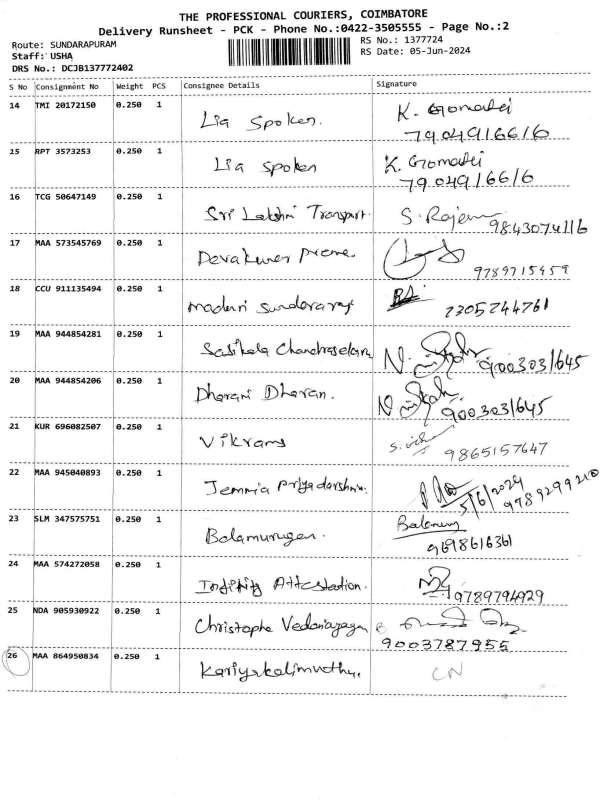 THE PROFESSIONAL COURIERS, COIMBATORE
Delivery Runsheet - PCK - Phone No.:0422-3505555 - Page No.:2
Route: SUNDARAPURAM
RS No.: 1377724
Staff: USHA
RS Date: 05-Jun-2024
DRS No.: DCJB137772402
S No Consignment No Weight PCS Consignee Details Signature
14 TMI 20172150 0.250 1 Lia Spoken. K. Gomathi
7904916616
15 RPT 3573253 0.250 1 Lia Spoken K. Gomathi
7904916616
16 TCG 50647149 0.250 1 Sri Lakshmi Transport. S. Rajem 9843074116
17 MAA 573545769 0.250 1 Devakumer Preme. 9789715459
18 CCU 911135494 0.250 1 Maduri Sundararaj 7305744761
19 MAA 944854281 0.250 1 Sasikala Chandrasekara 9003031645
20 MAA 944854206 0.250 1 Dharani Dharan. 9003031645
21 KUR 696082507 0.250 1 Vikrams 9865157647
22 MAA 945040893 0.250 1 Jemmia Priyadarshini. 5/6/2024 9789299210
23 SLM 347575751 0.250 1 Balamurugan. Balamurug
9698616361
24 MAA 574272058 0.250 1 Infinity Attestation. 9789794929
25 NDA 905930922 0.250 1 Christophe Vedanayagam
9003787955
26 MAA 864950834 0.250 1 Kariyakalimuthu. CN